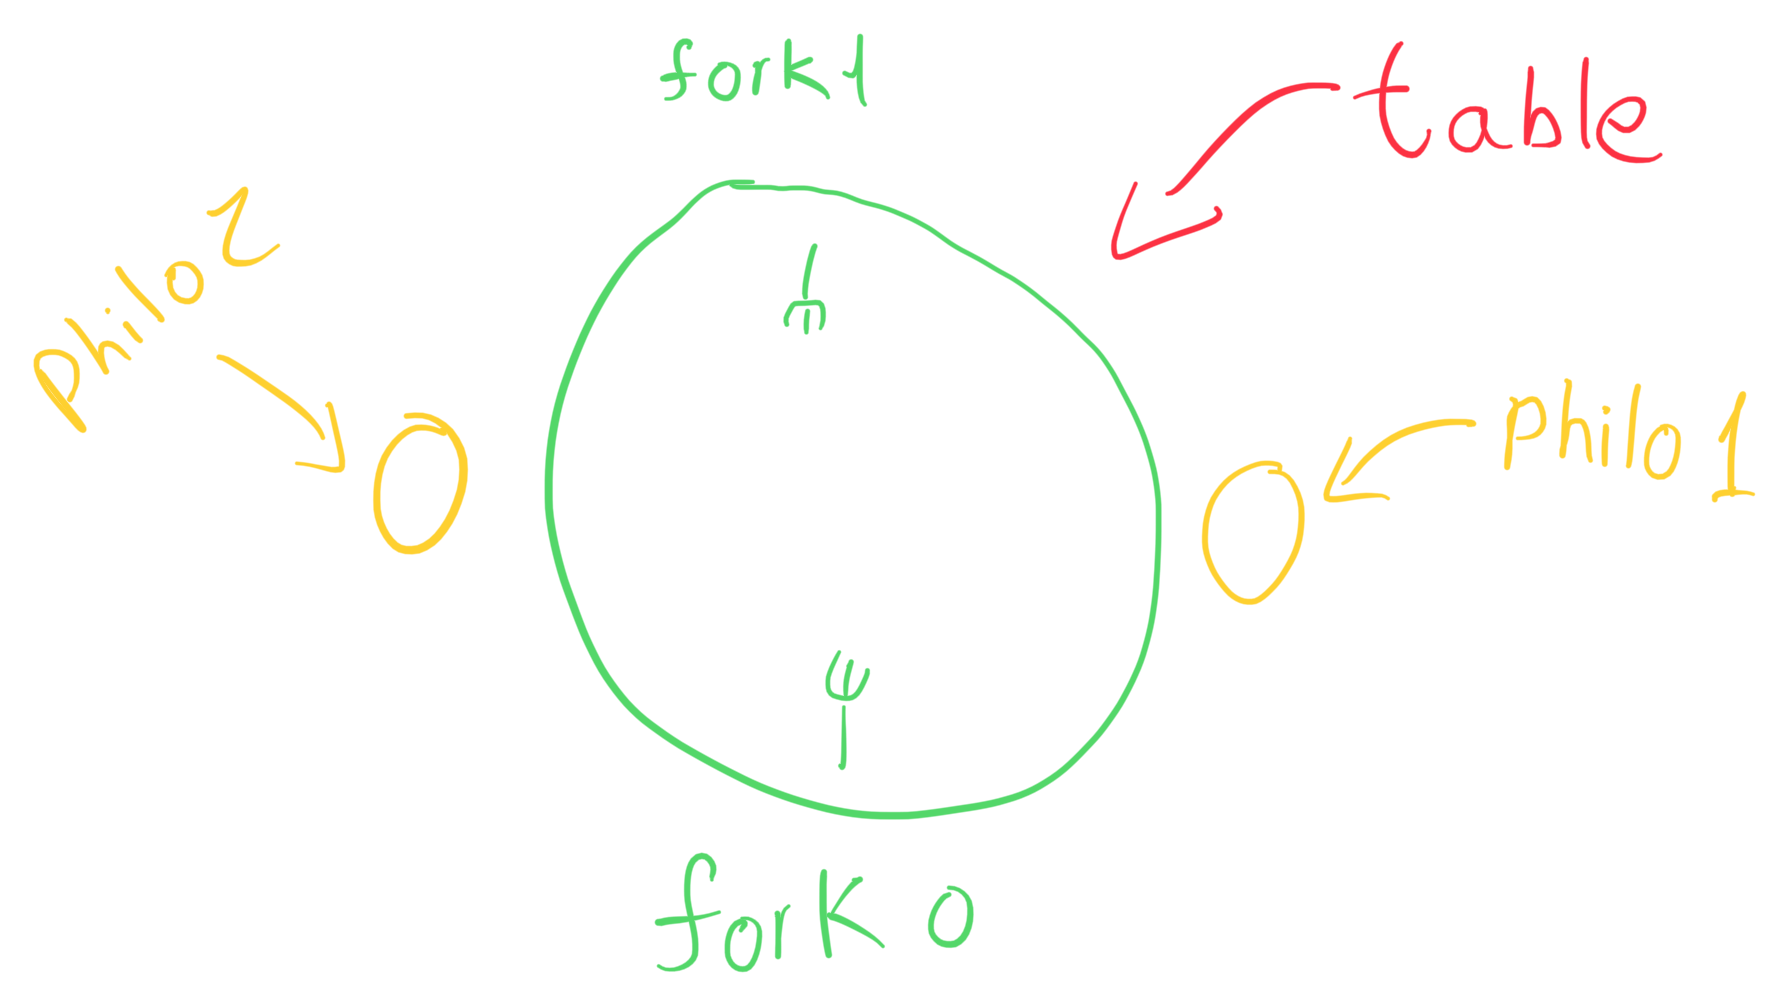 fork 1
table
philo 2
philo 1
fork 0